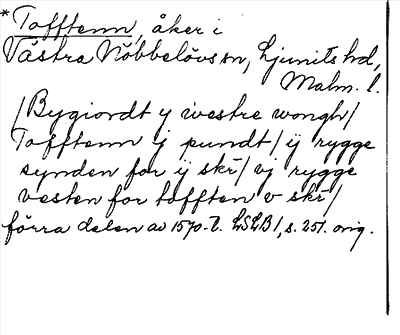 *Tofftenn, åker i
Västra Nöbbelövs sn, Ljunits hd,
Malm. l.
/Bygiordt y westre wongh/
Tofftenn j pundt/ ij rygge
synden for ij skr/ vj rygge
vesten for tofften v skr/
förra delen av 1570-t. LSLB1, s. 251. orig.